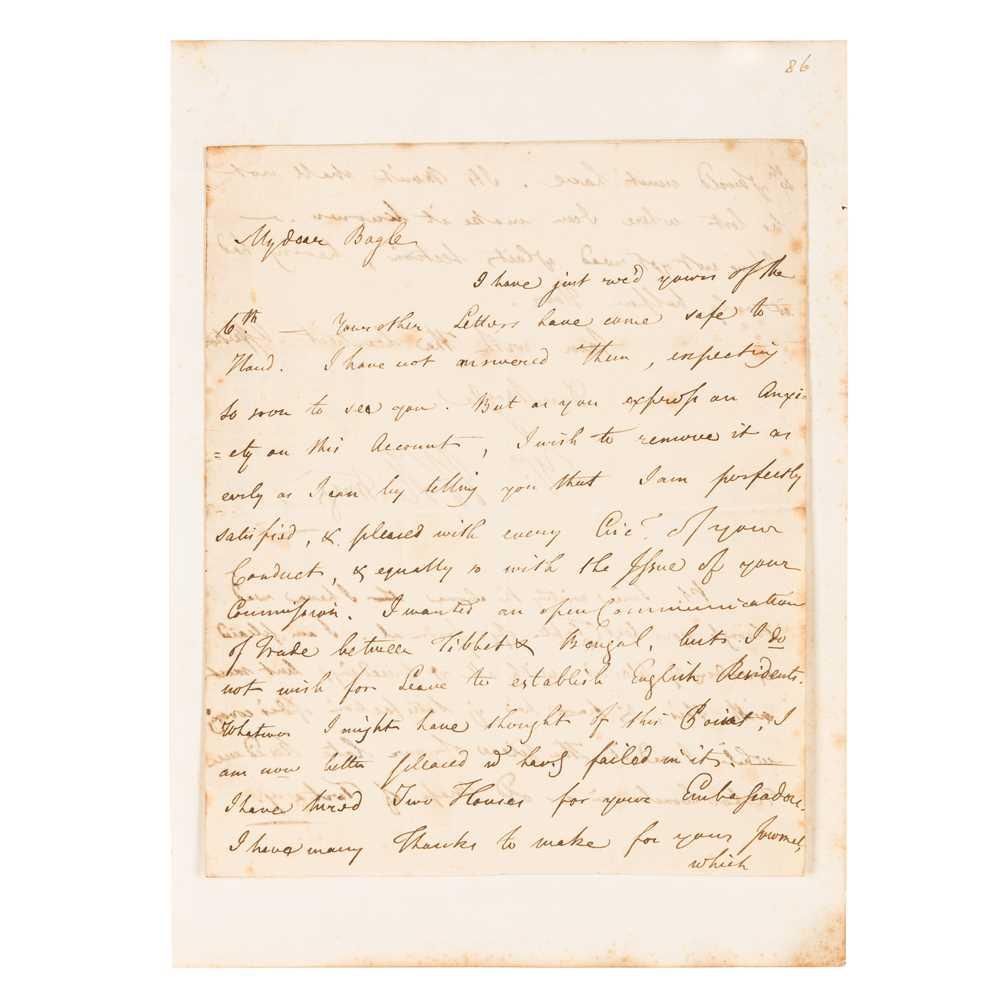 86
My dear Bogle
I have just rec'd yours of the
6.th — Your other Letters have come safe to
Hand. I have not answered them, expecting
so soon to see you. But as you express an Anxi=
=ety on this Account, I wish to remove it as
early as I can by telling you that I am perfectly
satisfied, & pleased with every Circ.e of your
Conduct, & equally so with the Issue of your
Commission. I wanted an open Communication
of Trade between Tibbet & Bengal, but I do
not wish for Leave to establish English Residents.
Whatever I might have thought of this Point, I
am now better pleased to have failed in it. —
I have hired Two Houses for your Embassadors.
I have many Thanks to make for your Journal,
which